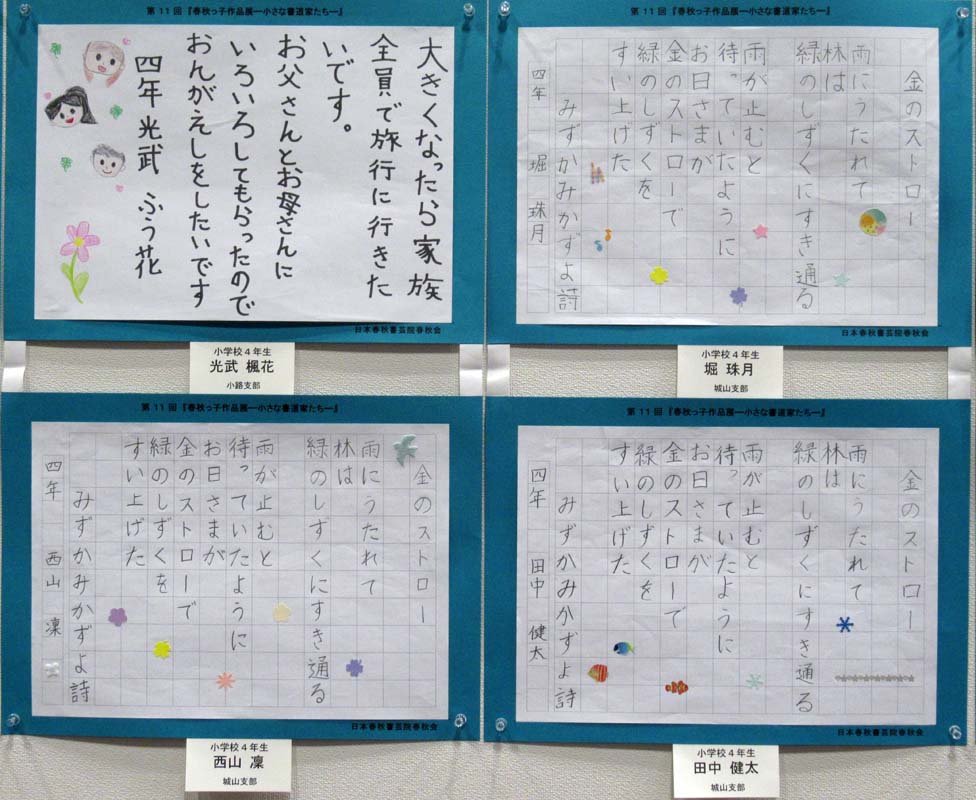 第11回『春秋っ子作品展―小さな書道家たち―』
大きくなったら家族
全員で旅行に行きた
いです。
お父さんとお母さんに
いろいろしてもらったので
おんがえしをしたいです
四年 光武 ふう花
日本春秋書芸院春秋会
小学校4年生
光武 楓花
小路支部
第11回『春秋っ子作品展―小さな書道家たち―』
金のストロー
雨にうたれて
林は
緑のしずくにすき通る
雨が止むと
待っていたように
お日さまが
金のストローで
緑のしずくを
すい上げた
みずかみかずよ詩
四年 堀 珠月
日本春秋書芸院春秋会
小学校4年生
堀 珠月
城山支部
第11回『春秋っ子作品展―小さな書道家たち―』
金のストロー
雨にうたれて
林は
緑のしずくにすき通る
雨が止むと
待っていたように
お日さまが
金のストローで
緑のしずくを
すい上げた
みずかみかずよ詩
四年 西山 凜
日本春秋書芸院春秋会
小学校4年生
西山 凜
城山支部
第11回『春秋っ子作品展―小さな書道家たち―』
金のストロー
雨にうたれて
林は
緑のしずくにすき通る
雨が止むと
待っていたように
お日さまが
金のストローで
緑のしずくを
すい上げた
みずかみかずよ詩
四年 田中 健太
日本春秋書芸院春秋会
小学校4年生
田中 健太
城山支部